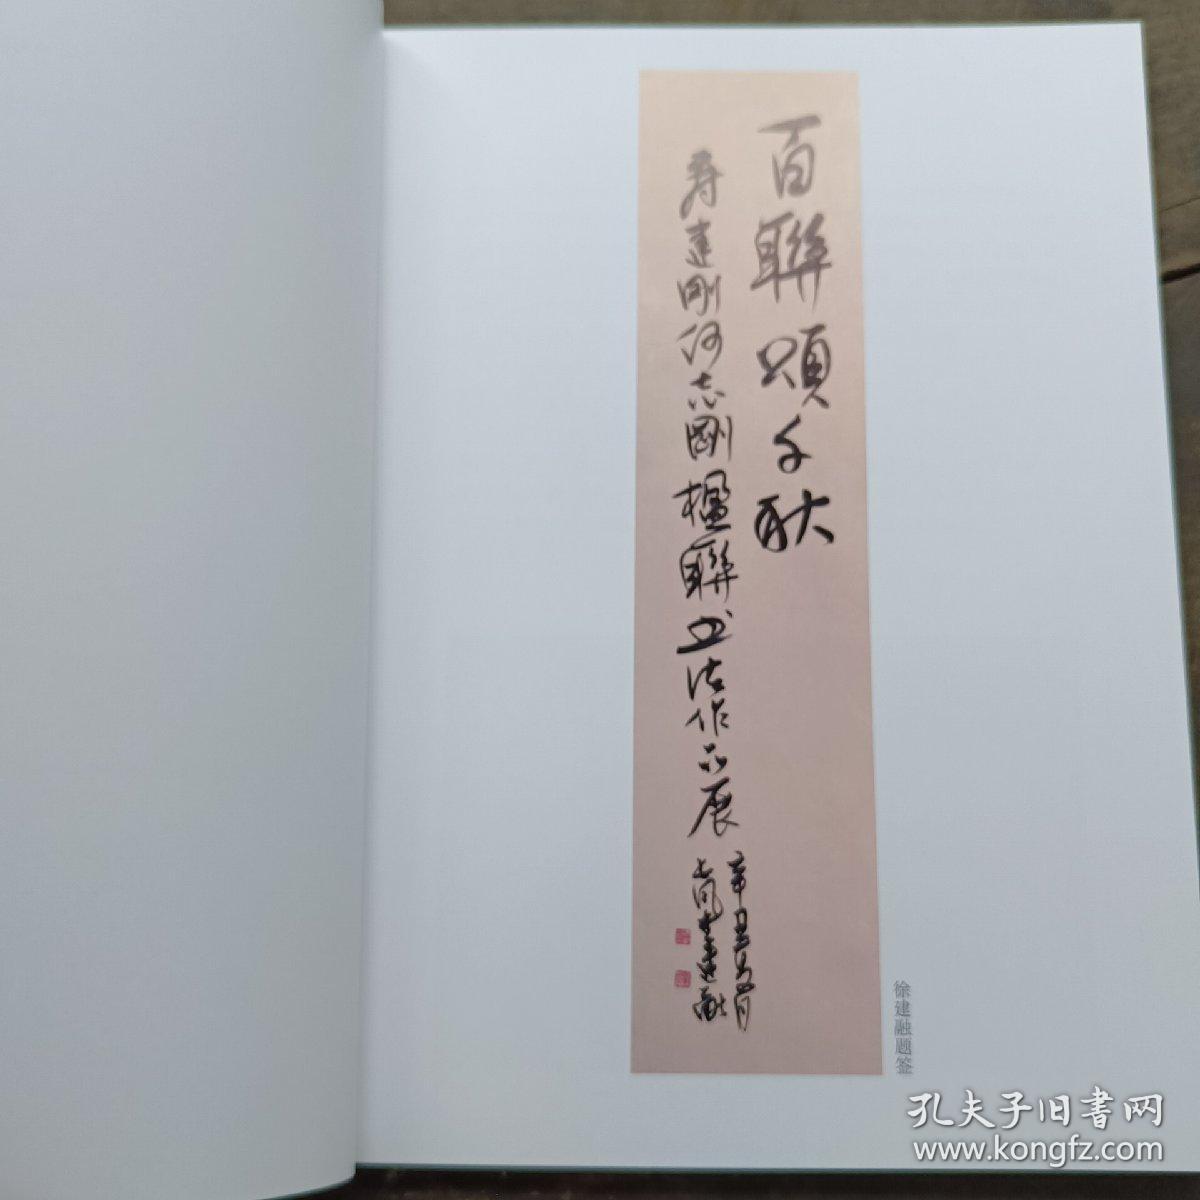 百聯頌千秋
寿建剛何志剛楹聯书法作品展
辛丑
建融
徐建融题签
孔夫子旧書网
www.kongfz.com